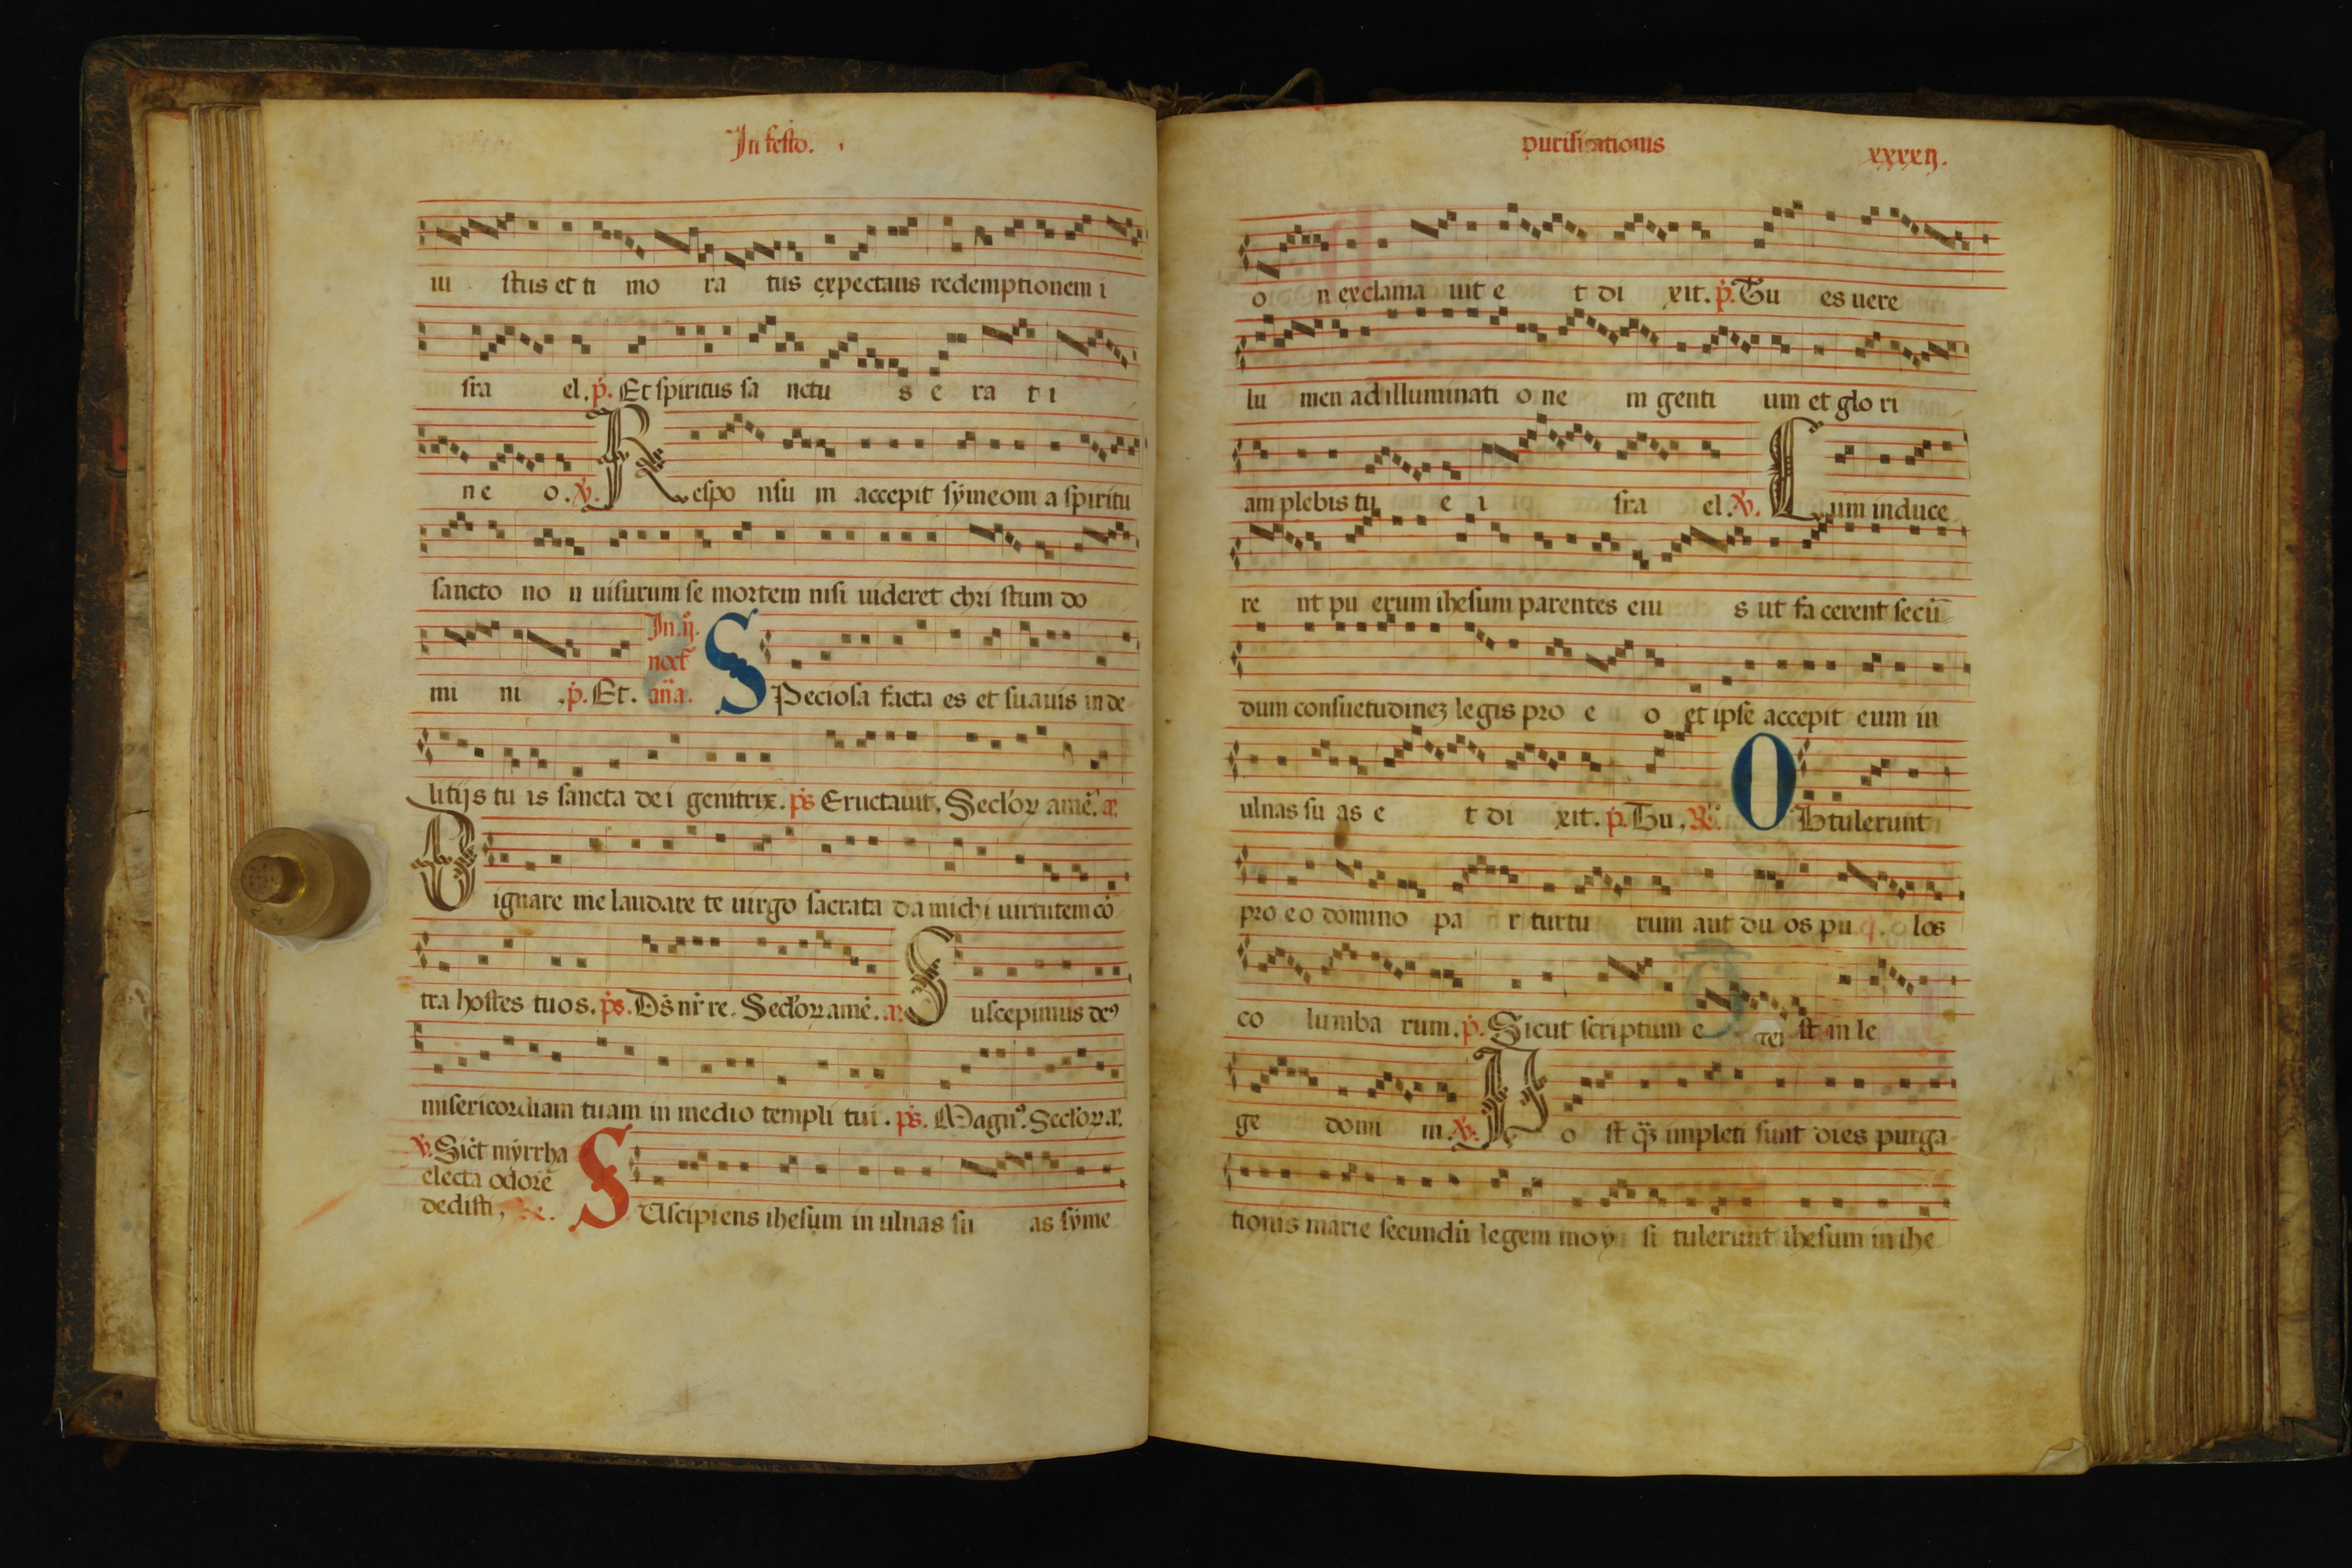 In festo.
iu stus et ti mo ra tus expectans redemptionem i
sra el. p̄. Et spiritus sa nctu s e ra t i
n e o. ℣. Respo nsu m accepit sẏmeom a spiritu
sancto no n uisurum se mortem nisi uideret chri stum do
In .ij.
noct̄
mi ni . p̄. Et. an̄a. SPeciosa facta es et suauis in de
litijs tu is sancta de i genitrix. ps̄ Eructauit. Secloꝝ amē.
Dignare me laudare te uirgo sacrata da michi uirtutem cō
tra hostes tuos. ps̄. Ds̄ nr̄ re. Secloꝝ amē. Suscepimus deꝰ
misericordiam tuam in medio templi tui . ps̄. Magnꝰ. Secloꝝ
℣. Sict̄ mẏrrha
electa odorē
dedisti, SUscipiens ihesum in ulnas su as sẏme
purificationis xxxxij.
o n exclama uit e t di xit. p̄. Tu es uere
lu men ad illuminati o ne m genti um et glo ri
am plebis tu e i sra el. ℣. Cum induce
re nt pu erum ihesum parentes eiu s ut fa cerent secū
dum consuetudineꝫ legis pro e o et ipse accepit eum in
ulnas su as e t di xit. p̄. Tu. ℟. OBtulerunt
pro e o domino pa r turtu rum aut du os pu los
co lumba rum. p̄. Sicut scriptum e st in le
ge domi ni. ℣. Po st qꝫ impleti sunt dies purga
tionis marie secundū legem moy si tulerunt ihesum in ihe